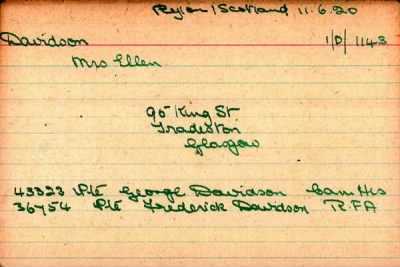 Region / Scotland 11.6.20
Davidson 1/D/1143
Mrs Ellen
95 King St
Tradeston
Glasgow
43323 Pte George Davidson Cam Hrs
36754 Pte Frederick Davidson R.F.A